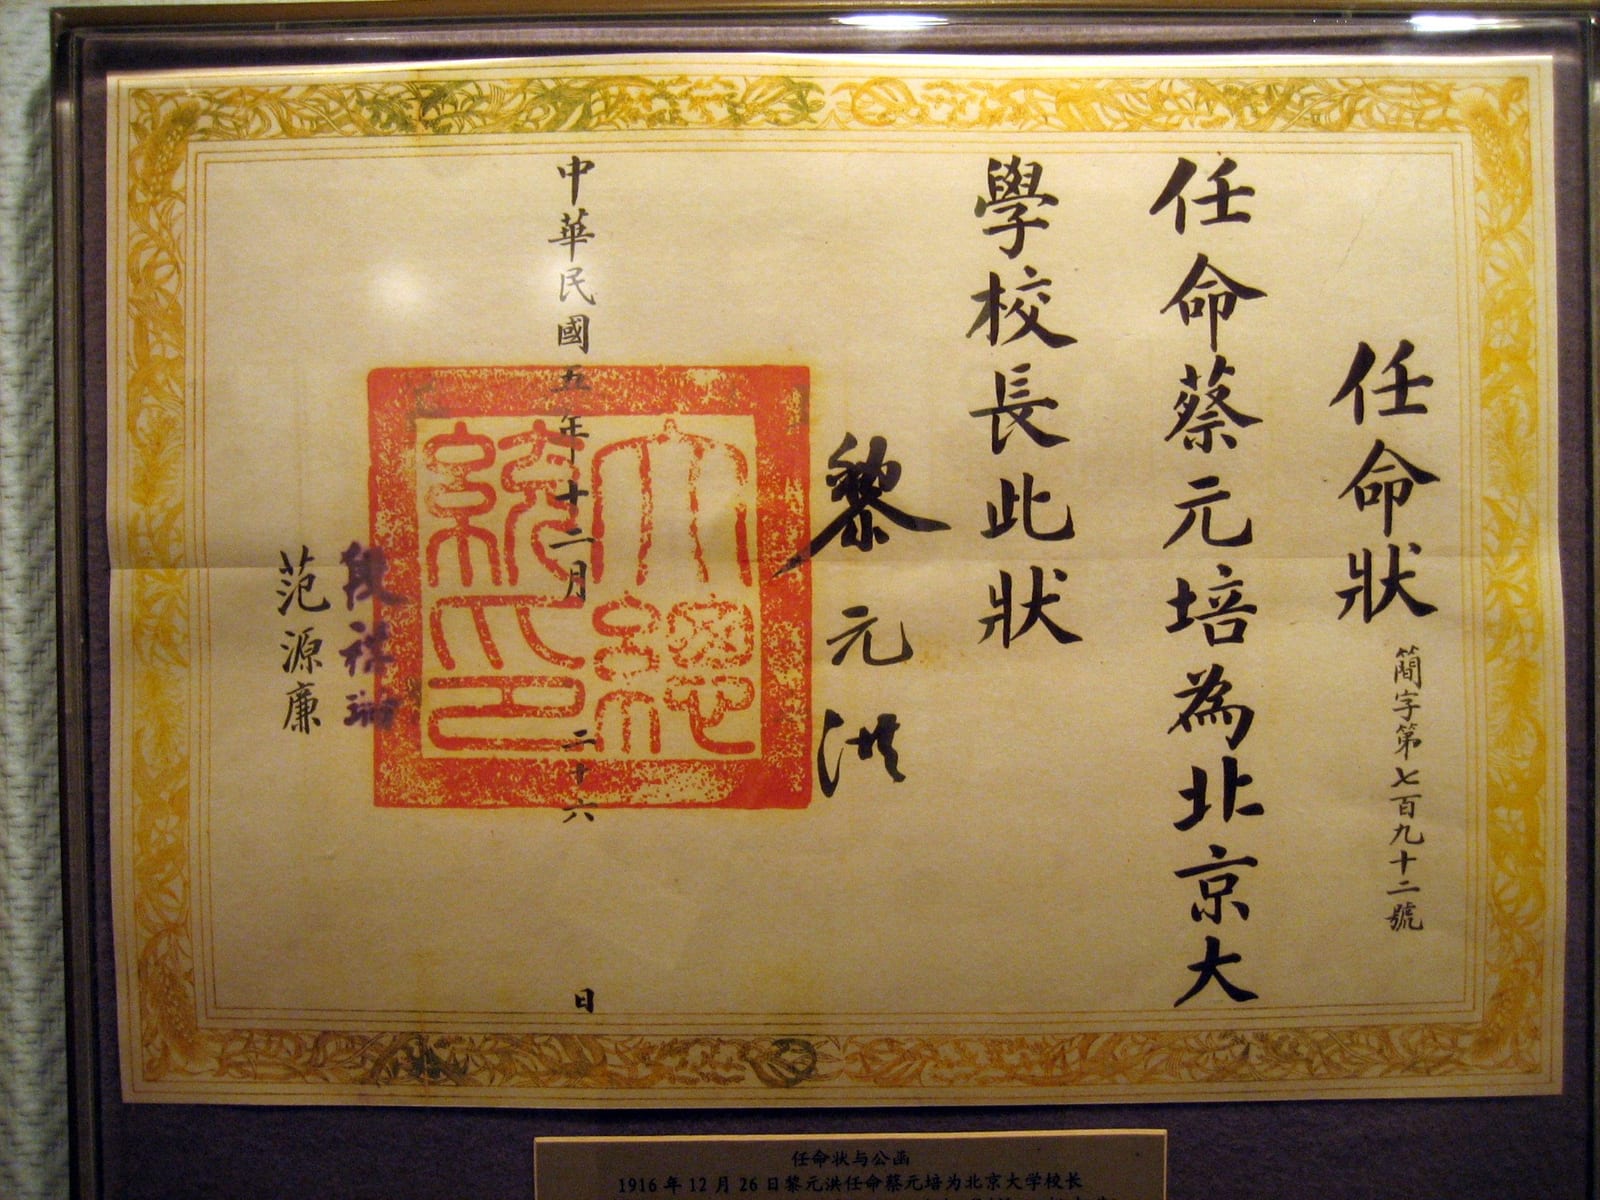 任命狀
簡字第七百九十二號
任命蔡元培為北京大
學校長此狀
黎元洪
大總統印
中華民國五年十二月二十六日
段祺瑞
范源廉
任命状与公函
1916年12月26日黎元洪任命蔡元培为北京大学校长